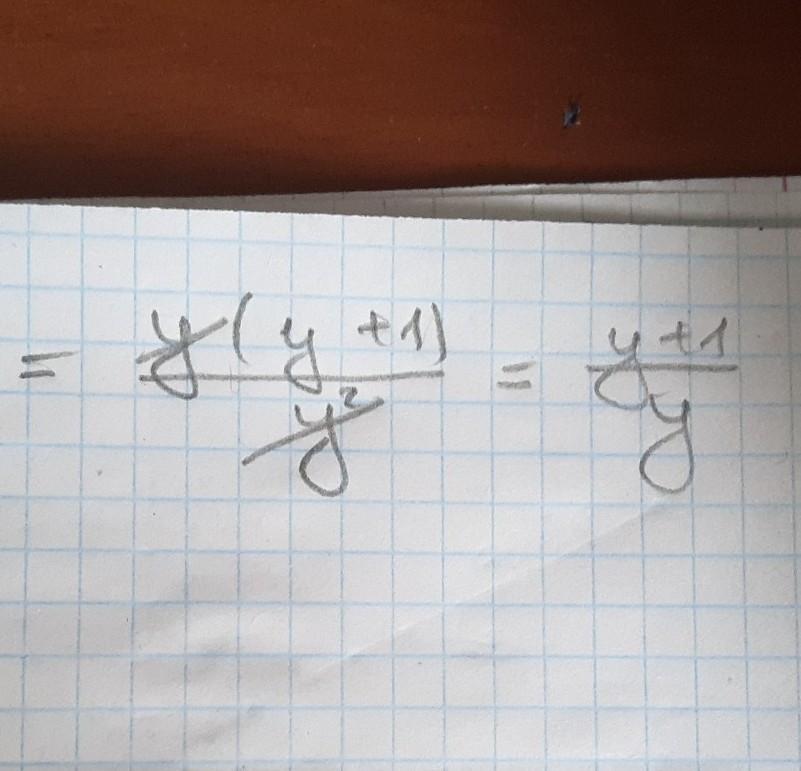 = y(y+1)/y² = y+1/y